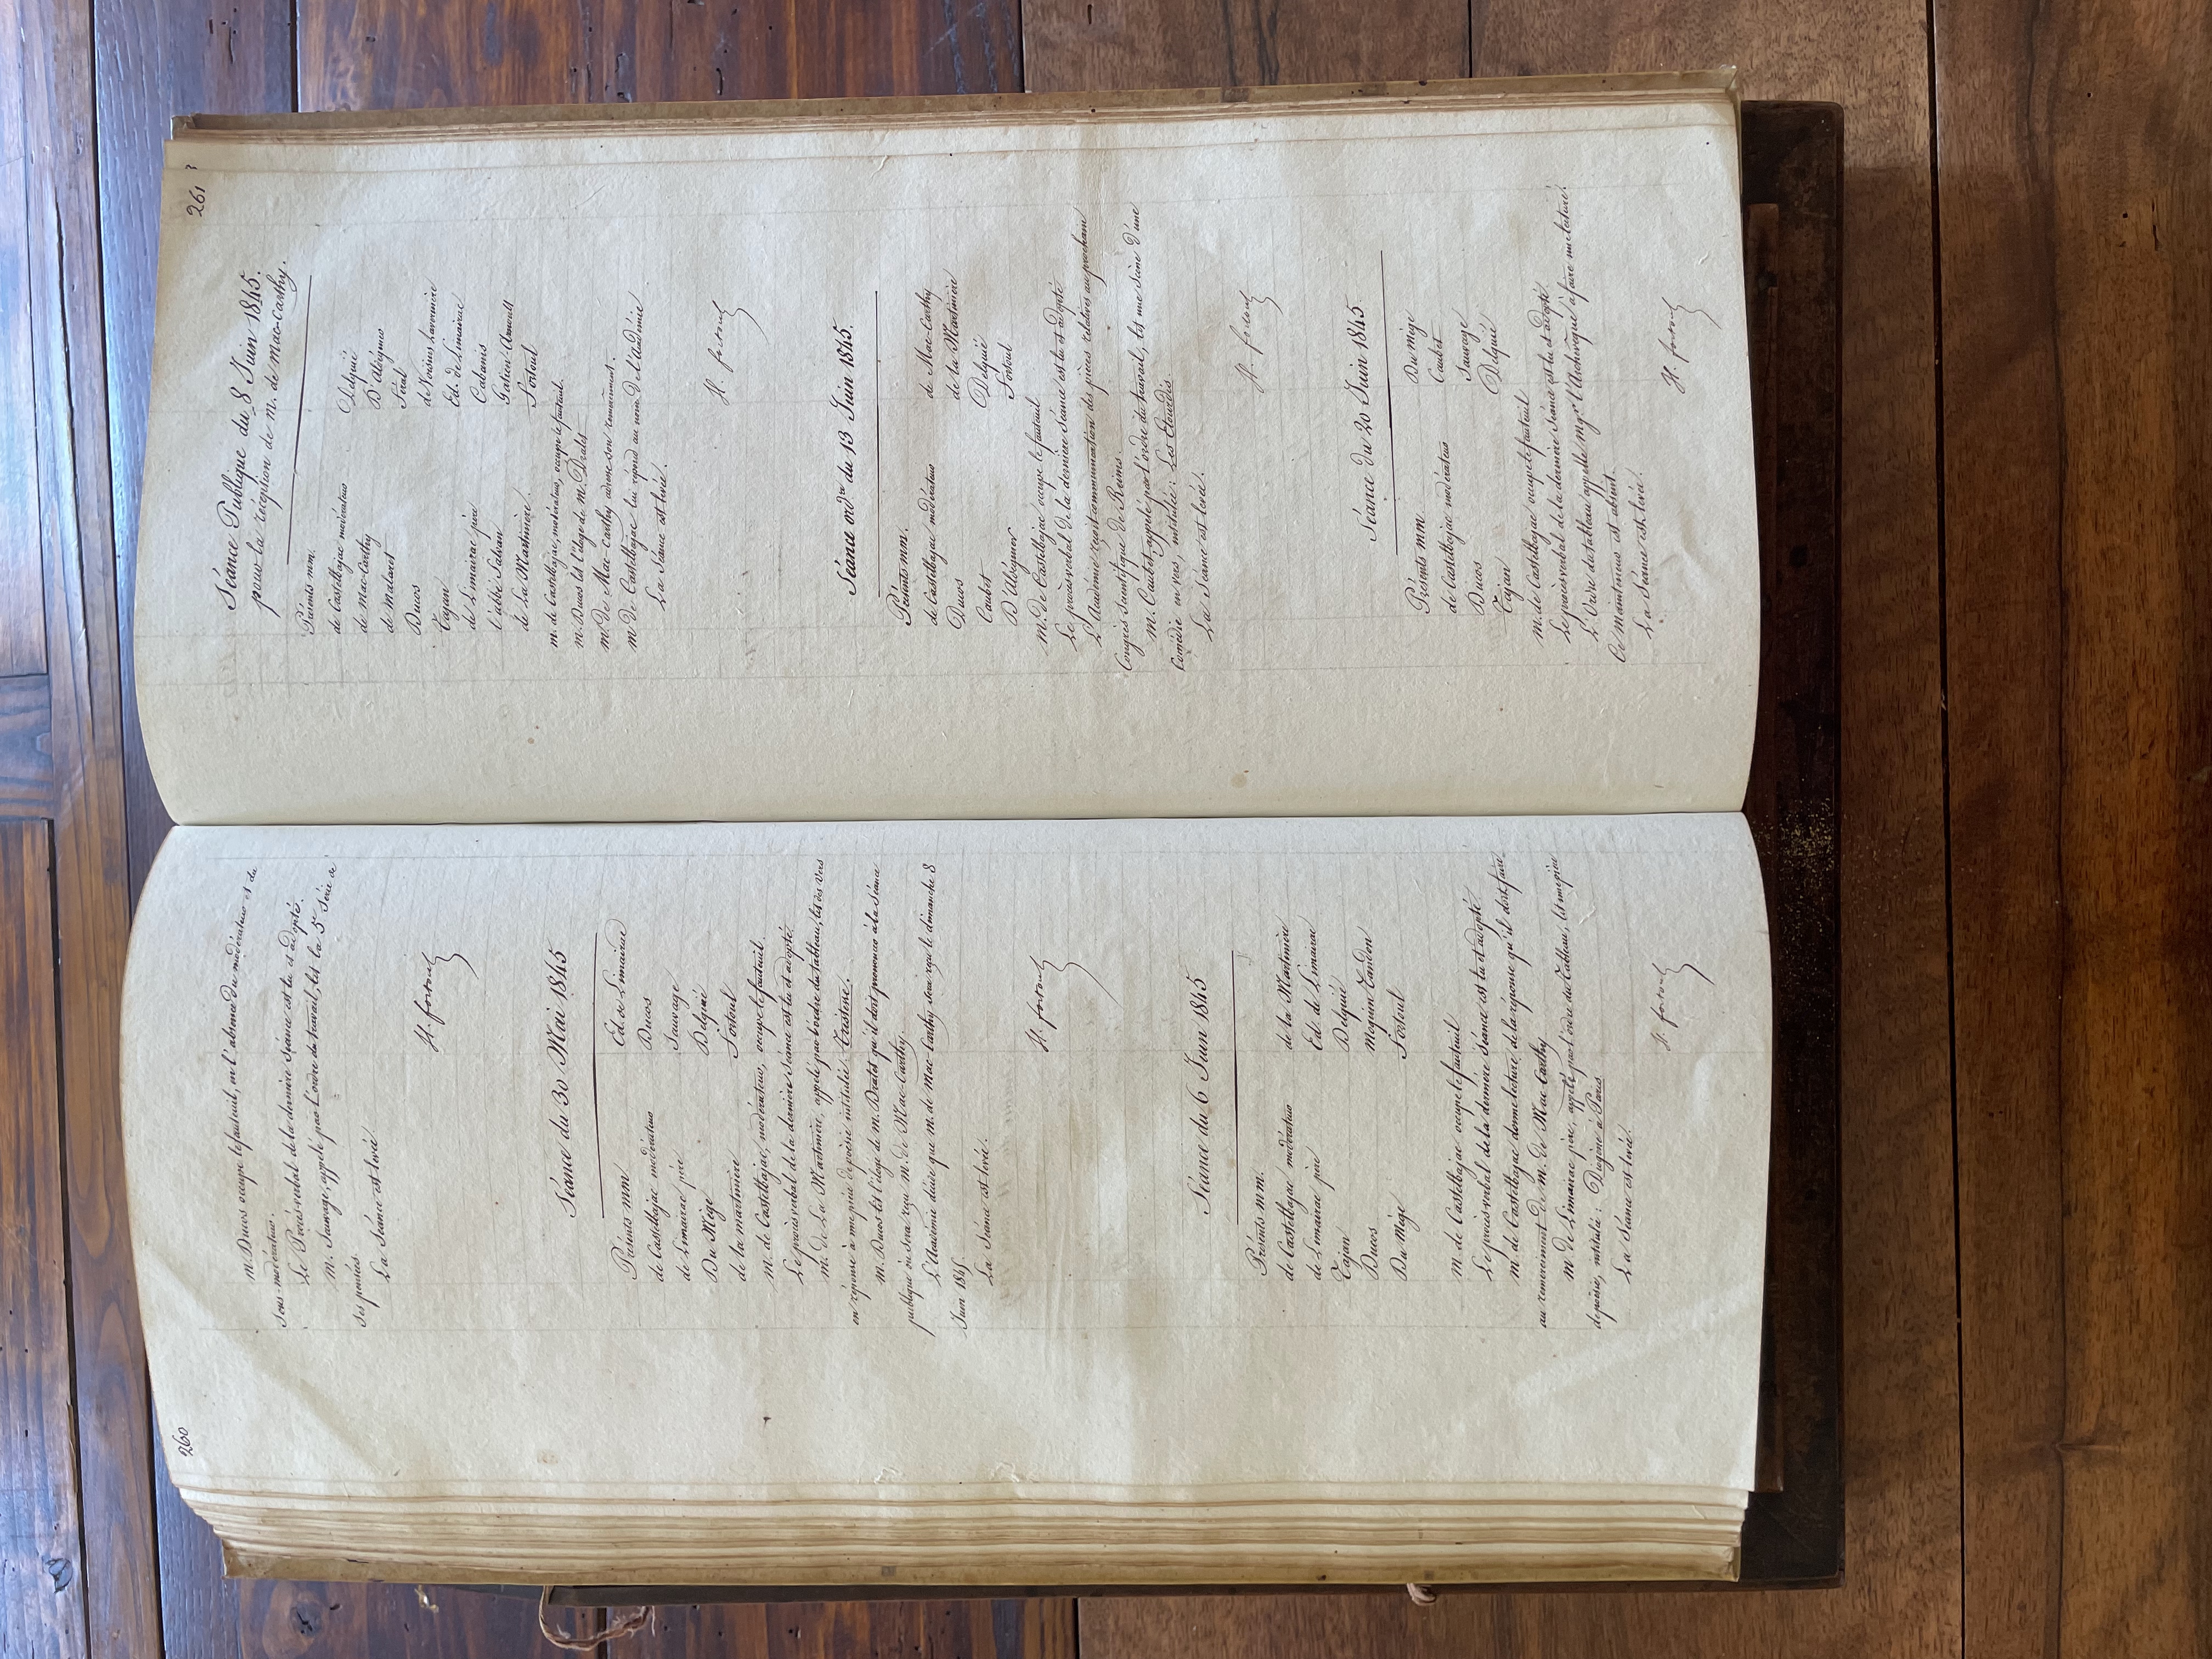 260
M. Ducos occupe le fauteuil, en l'absence du modérateur et du
sous-modérateur.
Le Procès-verbal de la dernière séance est lu et adopté.
M. Sauvage, appelé par l'ordre de travail, lit la 5e Série de
ses pensées.
La Séance est levée.
H. fortoul
Séance du 30 Mai 1845
Présents MM.
de Castelbajac modérateur
de Limairac père
Du Mège
de la Martinière
Ed. de Limairac
Ducos
Sauvage
Delquié
Fortoul
M. de Castelbajac, modérateur, occupe le fauteuil.
Le procès verbal de la dernière Séance est lu et adopté.
M. de La Martinière, appelé par l'ordre du tableau, lit des vers
en réponse à une pièce de poésie intitulée: Tristesse.
M. Ducos lit l'éloge de M. Dralet qu'il doit prononcer à la Séance
publique où sera reçu M. de Mac-Carthy.
L'Académie décide que M. de Mac-Carthy sera reçu le dimanche 8
Juin 1845.
La Séance est levée.
H. fortoul
Séance du 6 Juin 1845
Présents MM.
de Castelbajac modérateur
de Limairac père
Tajan
Ducos
Du Mège
de la Martinière
Ed. de Limairac
Delquié
Moquin-Tandon
Fortoul
M. de Castelbajac occupe le fauteuil
Le procès verbal de la dernière Séance est lu et adopté
M. de Castelbajac donne lecture de la réponse qu'il doit faire
au remerciement de M. de Mac-Carthy
M. de Limairac père, appelé par l'ordre du Tableau, lit une pièce
de poésie, intitulée: Diogène à Paris
La Séance est levée.
H. fortoul
261
Séance Publique du 8 Juin 1845.
pour la réception de M. de Mac-Carthy.
Présents MM.
de Castelbajac modérateur
de Mac-Carthy
de Malaret
Ducos
Tajan
de Limairac père
l'abbé Salvan
de La Martinière.
Delquié
D'Aldéguier
Féral
de Voisins Lavernière
Ed. de Limairac
Cabanis
Gatien-Arnoult
Fortoul
M. de Castelbajac, modérateur, occupe le fauteuil.
M. Ducos lit l'éloge de M. Dralet
M. De Mac-Carthy adresse son remerciement.
M. De Castelbajac lui répond au nom de l'Académie
La Séance est levée.
H. fortoul
Séance ordre du 13 Juin 1845.
Présents MM.
de Castelbajac modérateur
Ducos
Caubet
D'Aldéguier
de Mac-Carthy
de la Martinière
Delquié
Fortoul
M. De Castelbajac occupe le fauteuil
Le procès verbal de la dernière séance est lu et adopté
L'Académie reçoit communication des pièces relatives au prochain
Congrès Scientifique de Reims.
M. Caubet appelé par l'ordre du travail, lit une Scène d'une
Comédie en vers, intitulée: Les Etourdis.
La Séance est levée.
H. fortoul
Séance du 20 Juin 1845.
Présents MM.
de Castelbajac modérateur
Ducos
Tajan
Du Mège
Caubet
Sauvage
Delquié
M. de Castelbajac occupe le fauteuil
Le procès verbal de la dernière Séance est lu et adopté.
L'Ordre du tableau appelle Mgr l'Archevêque à faire une lecture.
Ce mainteneur est absent.
La Séance est levée.
H. fortoul